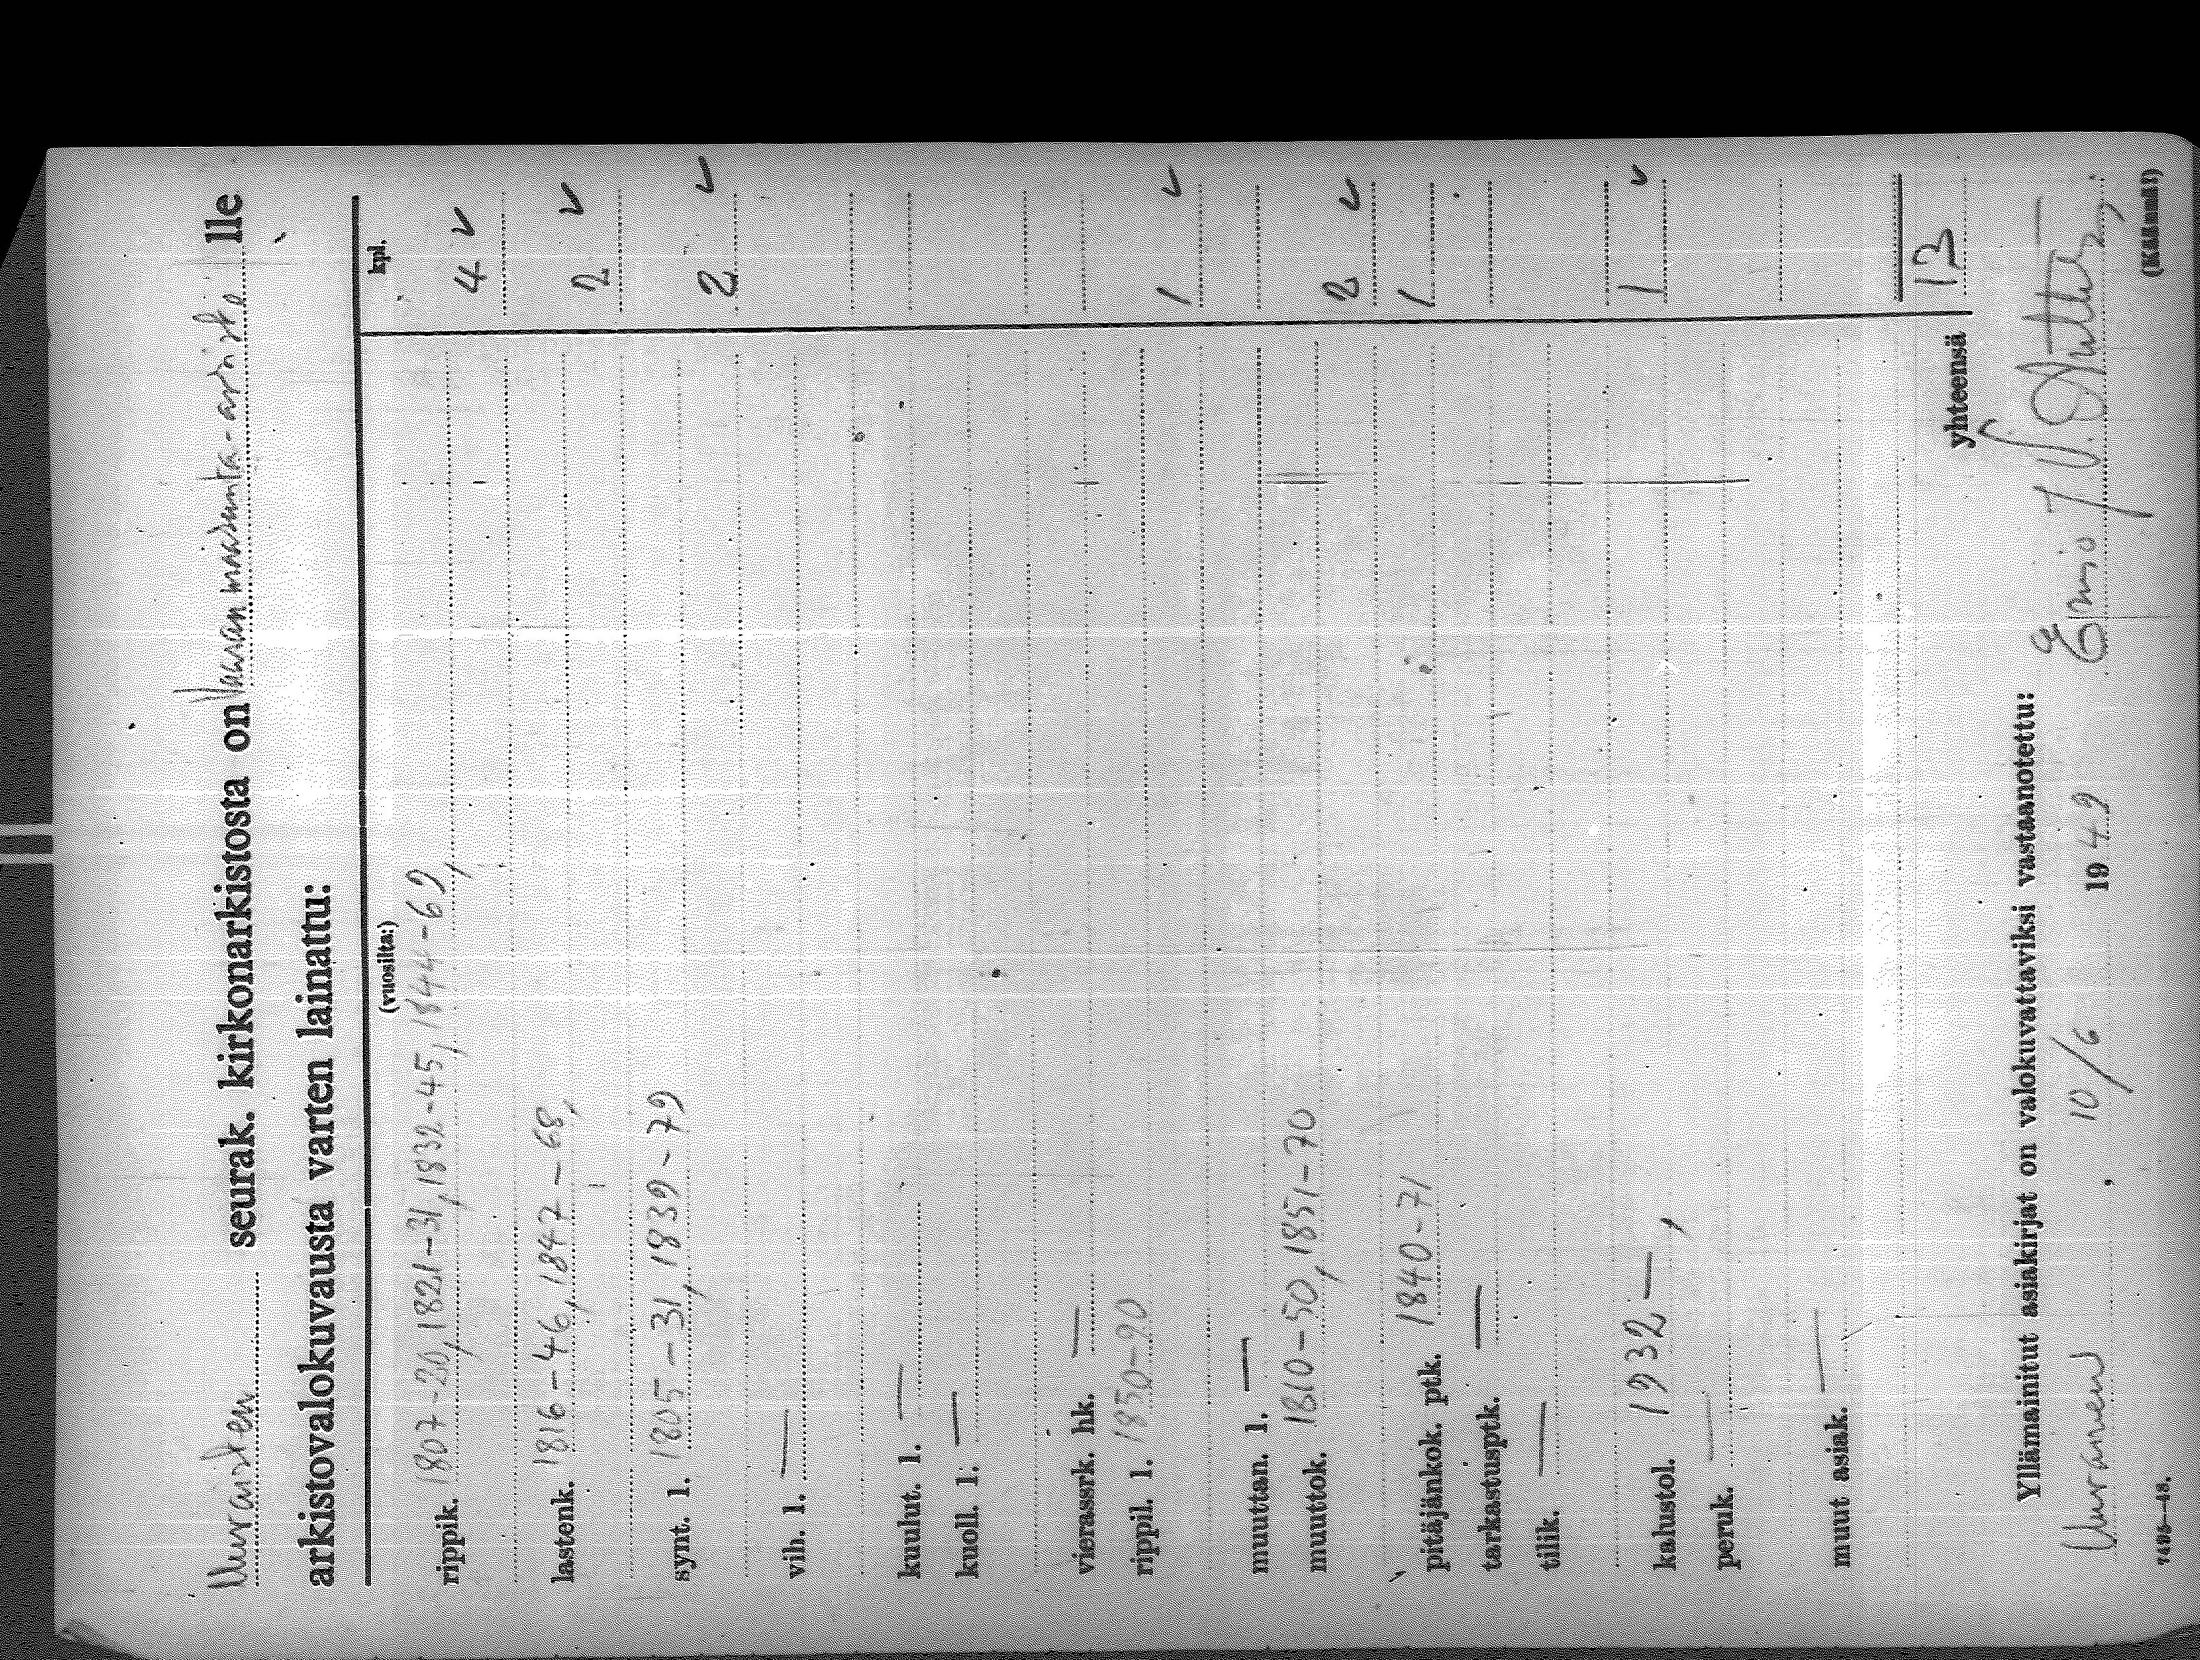 Muuraisten seurak. kirkonarkistosta on Vaasan maakunta-arist lle
arkistovalokuvausta varten lainattu:
(vuosilta:) kpl.
rippik. 1807-20, 1821-31, 1832-45, 1844-69, 4 ✓
lastenk. 1816-46, 1847-68, 2 ✓
synt. l. 1805-31, 1839-79 2 ✓
vih. l. —
kuulut. l. —
kuoll. l. —
vierassrk. hk. —
rippil. l. 1850-90 1 ✓
muuttan. l. —
muuttok. 1810-50, 1851-70 2 ✓
pitäjänkok. ptk. 1840-71 1
tarkastusptk. —
tilik. —
kalustol. 1932-, 1 ✓
peruk. —
muut asiak. —
yhteensä 13
Yllämainitut asiakirjat on valokuvattaviksi vastaanotettu:
, 10/6 1949 Eino
7485—48.